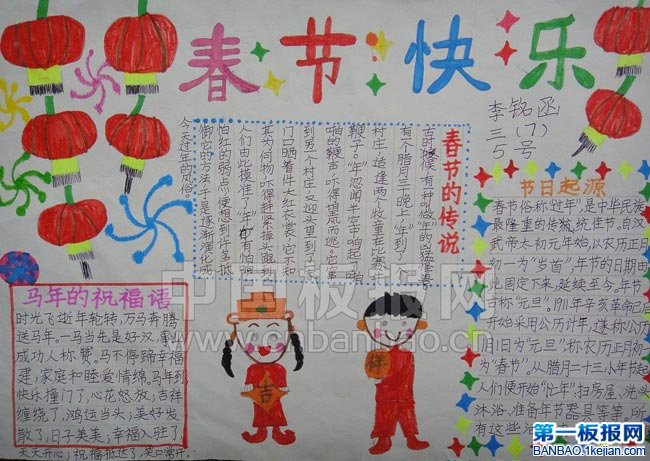 春节快乐
李铭函
三(7)
5号
春节的传说
古时候有一种叫做年的凶猛怪兽
有个腊月三十晚上“年”到了一
村庄适逢两个牧童在比赛
鞭子“年”忽闻半空中响起了啪
啪的鞭声吓得望风而逃它窜
到另一个村庄又迎头望到了一家
门口晒着件大红衣裳它不知
其为何物吓得赶紧掉头逃跑
人们由此摸准了“年”有怕响
怕红的弱点便想到许多抵
御它的方法于是逐渐演化成
今天过年的风俗
节日起源
春节俗称“过年”,是中华民族
最隆重的传统佳节。自汉
武帝太初元年始,以农历正月
初一为“岁首”,年节的日期由
此固定下来,延续至今。年节
古称“元旦”。1911年辛亥革命
开始采用公历计年,遂称公历
1月1日为“元旦”,称农历正月初一
为“春节”。从腊月二十三小年节起
人们便开始“忙年”扫房屋、洗头
沐浴、准备年节器具等等。所
有这些
马年的祝福语
时光飞逝年轮转,万马奔腾
送马年。一马当先是好汉,事业
成功人称赞。马不停蹄幸福
建,家庭和睦爱情绵。马年到
快乐撞门了,心花怒放;吉祥
缠绕了,鸿运当头;美好发
散了,日子美美;幸福入驻了
天天开心;祝福抵达了,笑口常开。
吉
祥
中国板报网
cnbanbao.cn
第一板报网
BANBAO.1kejian.com